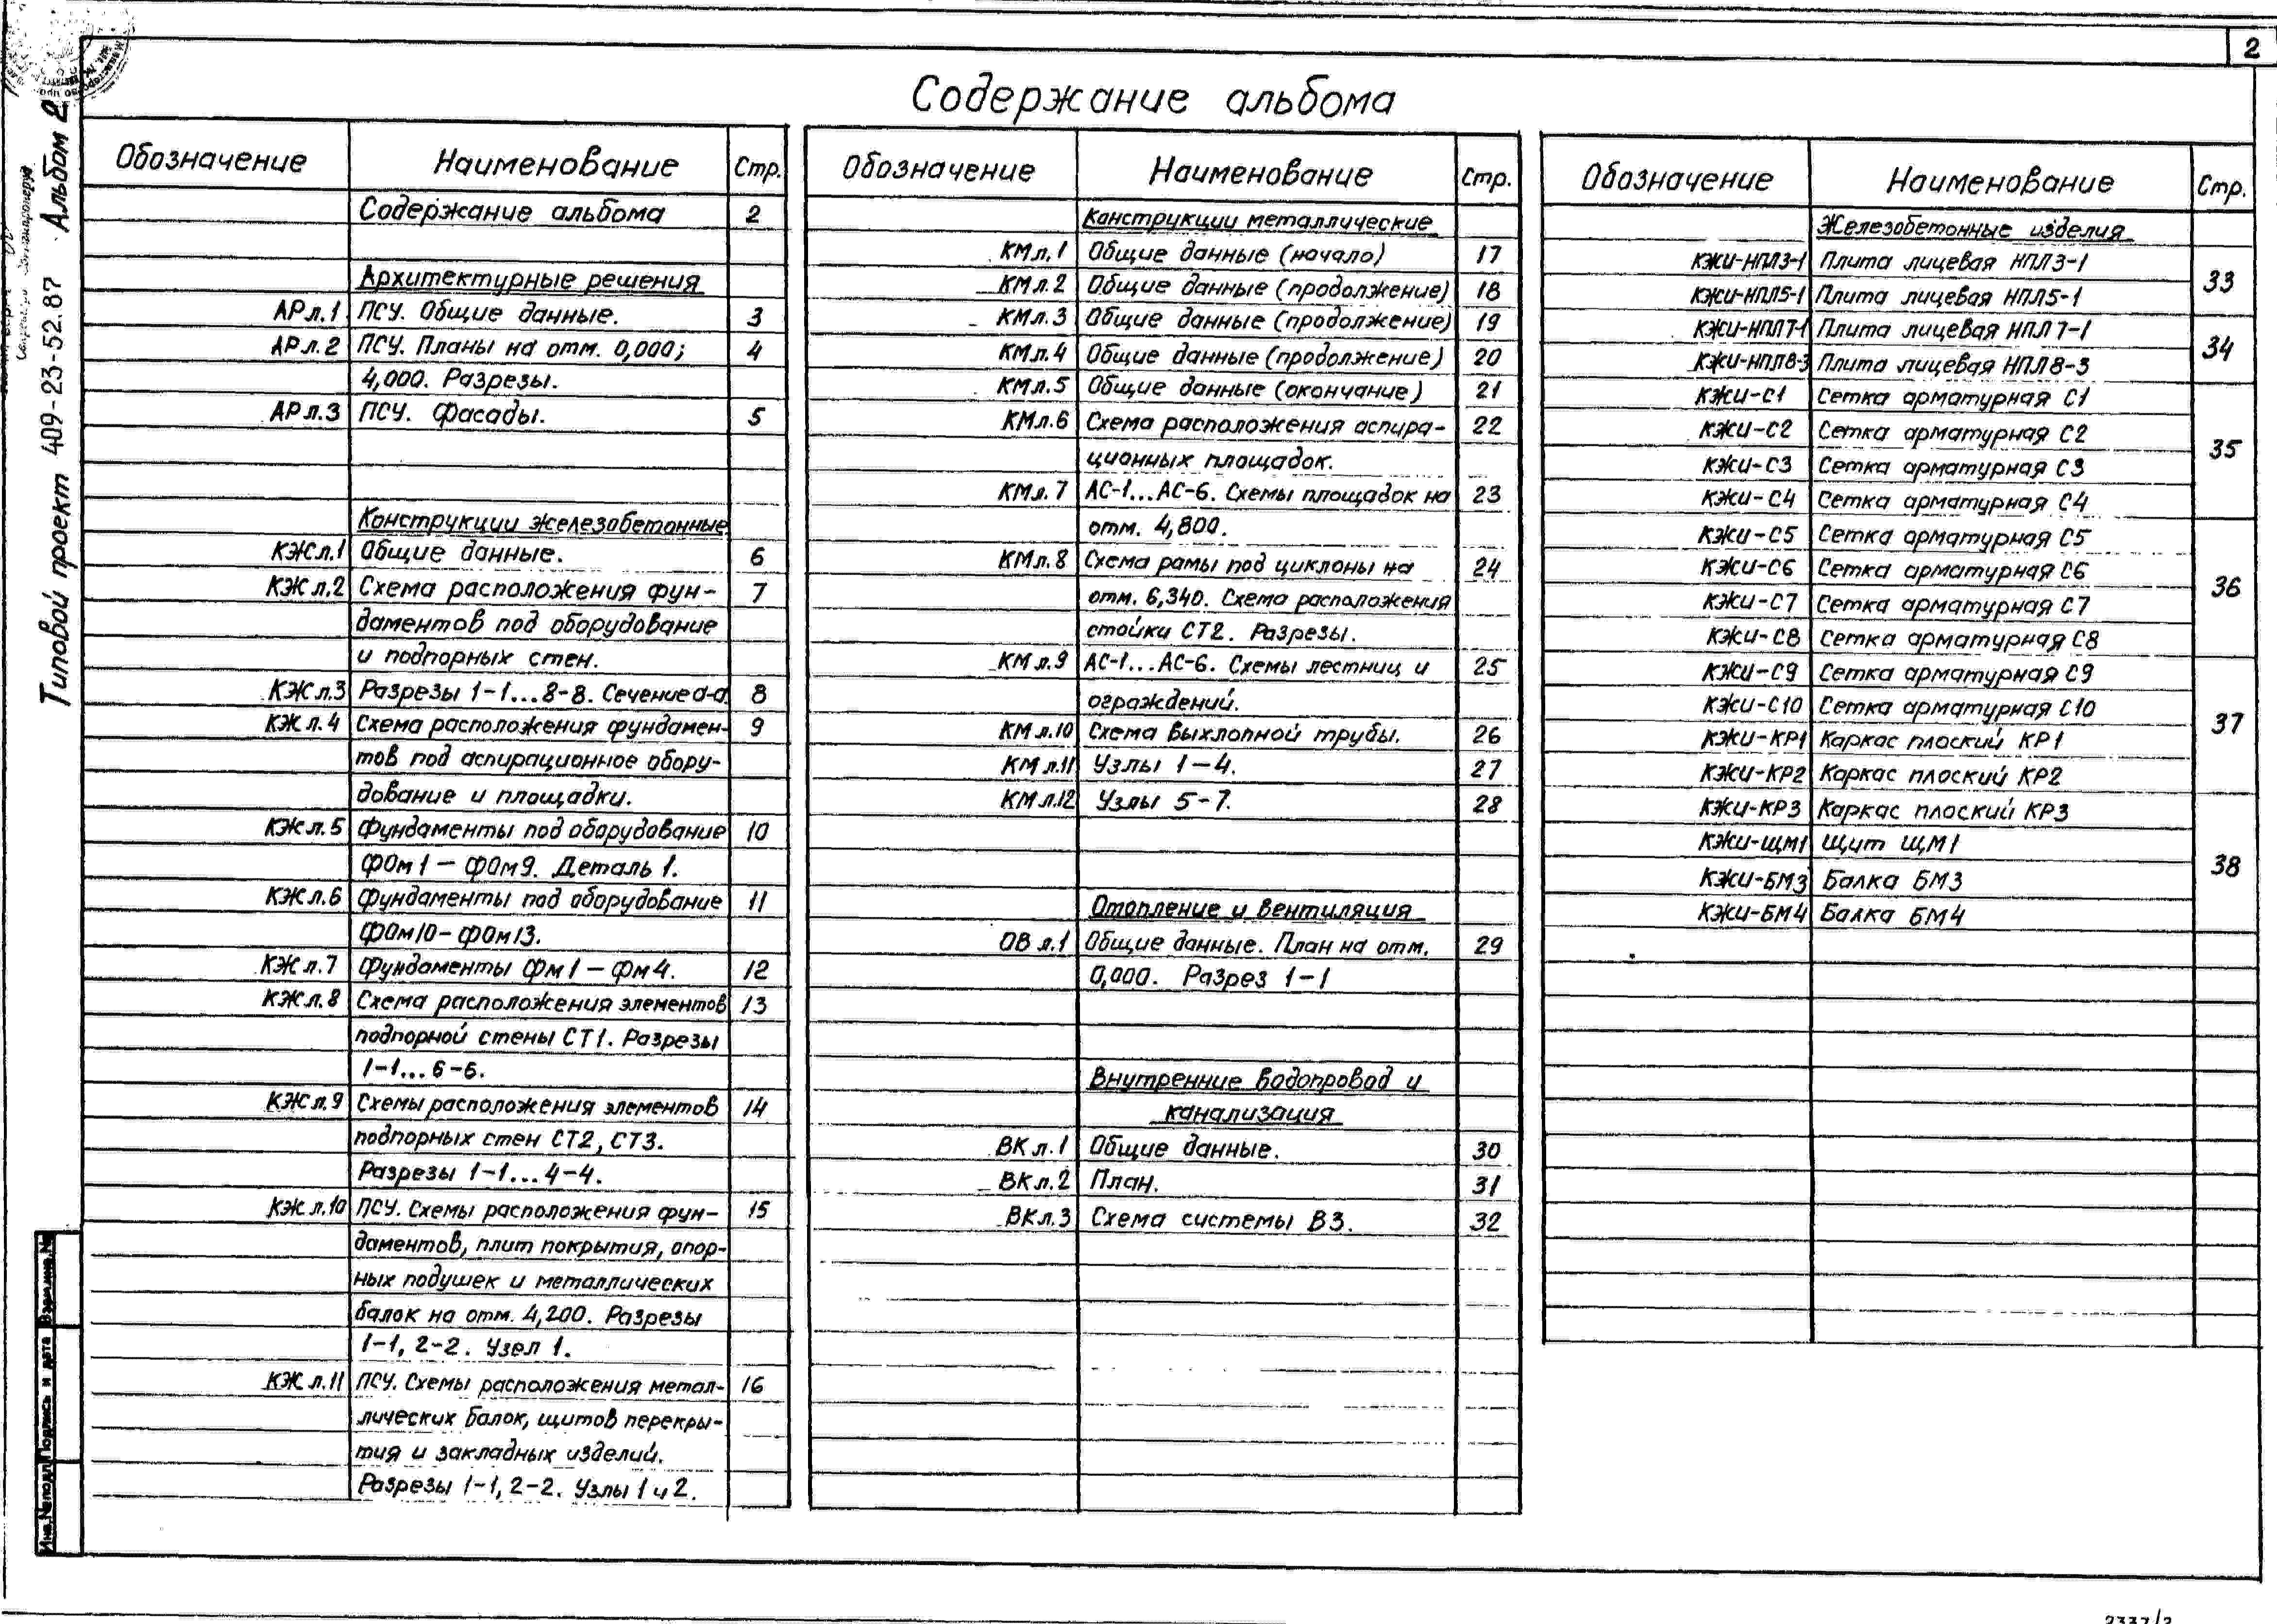 2
Содержание альбома
Типовой проект 409-23-52.87 Альбом 2
Обозначение Наименование Стр.
Содержание альбома 2
Архитектурные решения
АР л.1 ПСУ. Общие данные. 3
АР л.2 ПСУ. Планы на отм. 0,000; 4
4,000. Разрезы.
АР л.3 ПСУ. Фасады. 5
Конструкции железобетонные
КЖ л.1 Общие данные. 6
КЖ л.2 Схема расположения фун- 7
даментов под оборудование
и подпорных стен.
КЖ л.3 Разрезы 1-1...8-8. Сечение а-а. 8
КЖ л.4 Схема расположения фундамен- 9
тов под аспирационное обору-
дование и площадки.
КЖ л.5 Фундаменты под оборудование 10
ФОм1 — ФОм9. Деталь 1.
КЖ л.6 Фундаменты под оборудование 11
ФОм10-ФОм13.
КЖ л.7 Фундаменты Фм1 — Фм4. 12
КЖ л.8 Схема расположения элементов 13
подпорной стены СТ1. Разрезы
1-1...6-6.
КЖ л.9 Схемы расположения элементов 14
подпорных стен СТ2, СТ3.
Разрезы 1-1...4-4.
КЖ л.10 ПСУ. Схемы расположения фун- 15
даментов, плит покрытия, опор-
ных подушек и металлических
балок на отм. 4,200. Разрезы
1-1, 2-2. Узел 1.
КЖ л.11 ПСУ. Схемы расположения метал- 16
лических балок, щитов перекры-
тия и закладных изделий.
Разрезы 1-1, 2-2. Узлы 1 и 2.
Обозначение Наименование Стр.
Конструкции металлические
КМ л.1 Общие данные (начало) 17
КМ л.2 Общие данные (продолжение) 18
КМ л.3 Общие данные (продолжение) 19
КМ л.4 Общие данные (продолжение) 20
КМ л.5 Общие данные (окончание) 21
КМ л.6 Схема расположения аспира- 22
ционных площадок.
КМ л.7 АС-1...АС-6. Схемы площадок на 23
отм. 4,800.
КМ л.8 Схема рамы под циклоны на 24
отм. 6,340. Схема расположения
стойки СТ2. Разрезы.
КМ л.9 АС-1...АС-6. Схемы лестниц и 25
ограждений.
КМ л.10 Схема выхлопной трубы. 26
КМ л.11 Узлы 1 — 4. 27
КМ л.12 Узлы 5-7. 28
Отопление и вентиляция
ОВ л.1 Общие данные. План на отм. 29
0,000. Разрез 1-1
Внутренние водопровод и
канализация
ВК л.1 Общие данные. 30
ВК л.2 План. 31
ВК л.3 Схема системы В3. 32
Обозначение Наименование Стр.
Железобетонные изделия
КЖИ-НПЛ3-1 Плита лицевая НПЛ3-1
33
КЖИ-НПЛ5-1 Плита лицевая НПЛ5-1
КЖИ-НПЛ7-1 Плита лицевая НПЛ7-1
34
КЖИ-НПЛ8-3 Плита лицевая НПЛ8-3
КЖИ-С1 Сетка арматурная С1
КЖИ-С2 Сетка арматурная С2
35
КЖИ-С3 Сетка арматурная С3
КЖИ-С4 Сетка арматурная С4
КЖИ-С5 Сетка арматурная С5
КЖИ-С6 Сетка арматурная С6
36
КЖИ-С7 Сетка арматурная С7
КЖИ-С8 Сетка арматурная С8
КЖИ-С9 Сетка арматурная С9
КЖИ-С10 Сетка арматурная С10
37
КЖИ-КР1 Каркас плоский КР1
КЖИ-КР2 Каркас плоский КР2
КЖИ-КР3 Каркас плоский КР3
КЖИ-ЩМ1 Щит ЩМ1
38
КЖИ-БМ3 Балка БМ3
КЖИ-БМ4 Балка БМ4
Инв.№ подл. Подпись и дата Взам.инв.№